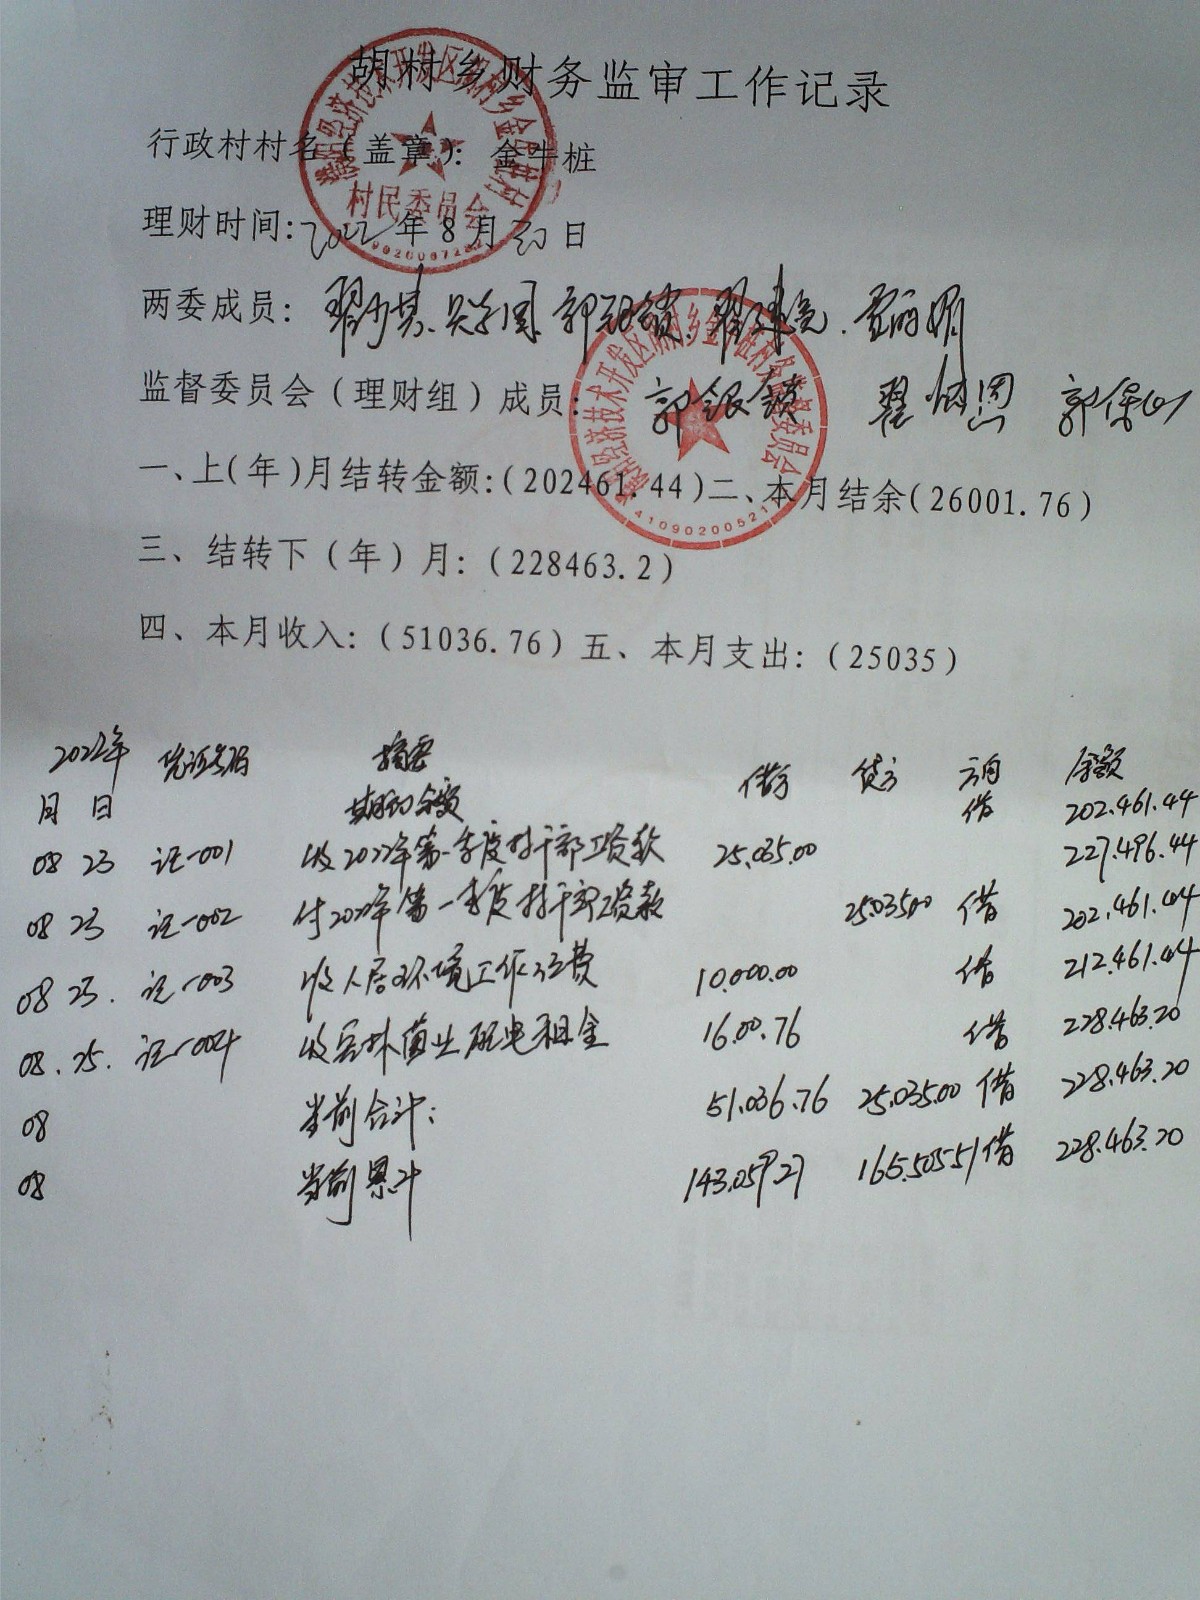 胡村乡财务监审工作记录
行政村村名（盖章）：金牛桩
理财时间：2022年8月30日
两委成员：
监督委员会（理财组）成员：郭银锁 郭保山
一、上(年)月结转金额：(202461.44)二、本月结余(26001.76)
三、结转下（年）月：(228463.2)
四、本月收入：(51036.76)五、本月支出：(25035)
2022年 凭证号码 摘要 借方 贷方 方向 余额
月 日 期初余额 借 202.461.44
08 23 记-001 收2022年第一季度村干部工资款 25.035.00 227.496.44
08 23 记-002 付2022年第一季度村干部工资款 25.035.00 借 202.461.44
08 23. 记-003 收人居环境工作经费 10.000.00 借 212.461.44
08.25. 记-004 收 菌业配电租金 16.00.76 借 228.463.20
08 当前合计: 51.036.76 25.035.00 借 228.463.20
08 当前累计 143.059.27 165.505.51 借 228.463.20
村民委员会
4109020052